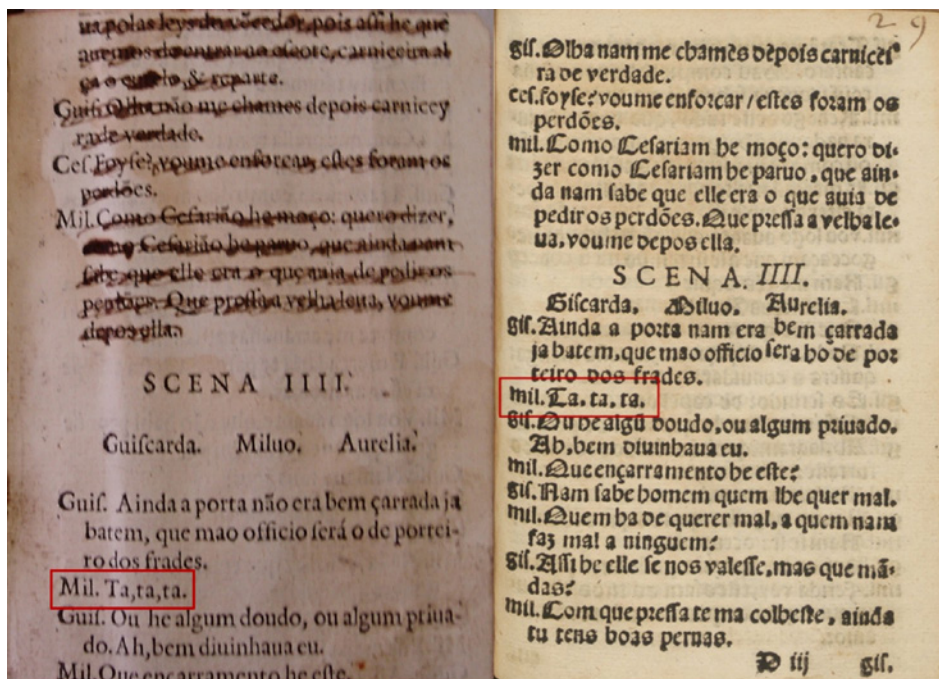 ua polas leys do vẽcedor, pois assi he que
queremos do entrar ao escote, carniceira al
ça o cutelo, & reparte.
Guis. Olha não me chames depois carnicey
ra de verdade.
Ces. Foyse? voume enforcar, estes foram os
perdões.
Mil. Como Cesarião he moço: quero dizer,
como Cesarião he paruo, que ainda nam
sabe que elle era o que auia de pedir os
perdões. Que pressa a velha leua, voume
depos ella.
SCENA IIII.
Guiſcarda. Miluo. Aurelia.
Guiſ. Ainda a porta não era bem çarrada ja
batem, que mao officio ſerá o de portei-
ro dos frades.
Mil. Ta,ta,ta.
Guiſ. Ou he algum doudo, ou algum priua-
do. Ah, bem diuinhaua eu.
Mil. Que encarramento he eſte.
29
giſ. Olha nam me chames depois carnicei
ra de verdade.
ceſ. foyſe? voume enforcar / eſtes foram os
perdões.
mil. Como Ceſariam he moço: quero di-
zer como Ceſariam he paruo, que ain-
da nam ſabe que elle era o que auia de
pedir os perdões. Que preſſa a velha le-
ua, voume depos ella.
SCENA. IIII.
Giſcarda. Miluo. Aurelia.
giſ. Ainda a porta nam era bem çarrada
ja batem, que mao officio ſera ho de por
teiro dos frades.
mil. Ta. ta, ta.
giſ. Ou he algũ doudo, ou algum priuado.
Ah, bem diuinhaua eu.
mil. Que ençarramento he eſte?
giſ. Nam ſabe homem quem lhe quer mal.
mil. Quem ha de querer mal, a quem nam
faz mal a ninguem?
giſ. Aſſi he elle ſe nos valeſſe, mas que mã-
das?
mil. Com que preſſa te ma colheſte, ainda
tu tens boas pernas.
D iij giſ.